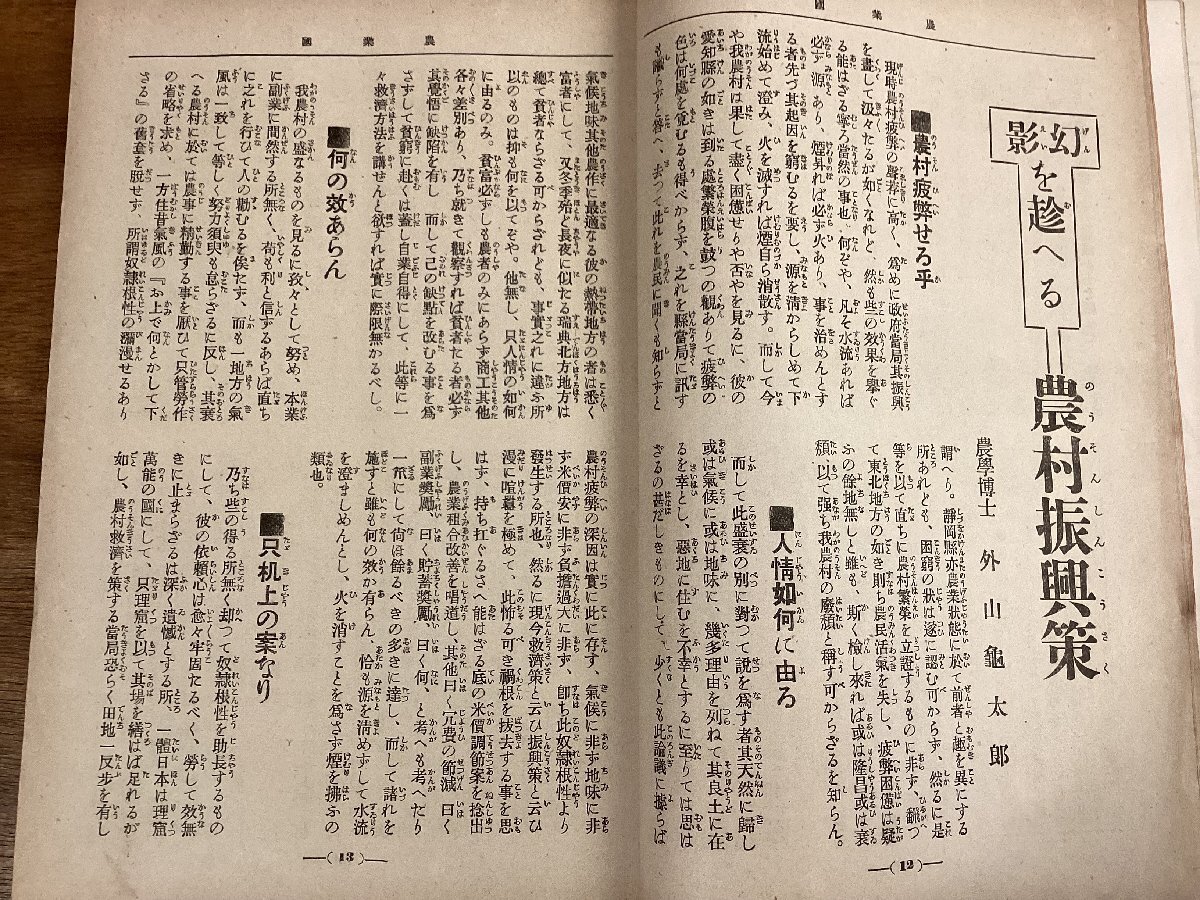 國業農
幻影を趁へる
農村振興策
農學博士 外山龜太郎
■農村疲弊せる乎
現時農村疲弊の聲漸に高く、爲めに政府當局其振興
を畫して汲々たるが如くなれど、然も些の效果を擧ぐ
る能はざる寧ろ當然の事也。何ぞや、凡そ水流あれば
必ず源あり、煙昇れば必ず火あり、事を治めんとす
る者先づ其起因を窮むるを要し、源を淸からしめて下
流始めて澄み、火を滅すれば煙自ら消散す。而して今
や我農村は果して盡く困憊せりや否やを見るに、彼の
愛知縣の如きは到る處繁榮腹を鼓つの觀ありて疲弊の
色は何處を覓むるも得べからず、之れを縣當局に訊す
も識らずと答へ、去つて此れを農民に聞くも知らずと
謂へり。靜岡縣亦農業狀態に於て前者と趣を異にする
所あれども、困窮の狀は遂に認む可からず、然るに是
等を以て直ちに農村繁榮を立證するものに非ず、飜つ
て東北地方の如き則ち農民活氣を失し、疲弊困憊は疑
ふの餘地無しと雖も、斯く檢し來れば或は隆昌或は衰
頽、以て强ち我農村の廢頽と稱す可からざるを知らん。
■人情如何に由る
而して此盛衰の別に對つて說を爲す者其天然に歸し
或は氣候に或は地味に、幾多理由を列ねて其良土に在
るを幸とし、惡地に住むを不幸とするに至りては思は
ざるの甚だしきものにして、少くとも此論議に據らば
—(12)—
國業農
氣候地味其他農作に最適なる彼の熱帶地方の者は悉く
富者にして、又冬季殆ど長夜に似たる瑞典北方地方は
總て貧者ならざる可からざれども、事實之れに違ふ所
以のものは抑も何を以てぞや。他無し、只人情の如何
に由るのみ。貧富必ずしも農者のみにあらず商工其他
各々差別あり、乃ち就きて觀察すれば貧者たる者必ず
其覺悟に缺陷を有し、而して己の缺點を改むる事を爲
さずして貧窮に赴くは蓋し自業自得にして、此等に一
々救濟方法を講ぜんと欲すれば實に際限無かるべし。
■何の效あらん
我農村の盛なるものを見るに孜々として努め、本業
に副業に間然する所無く、苟も利と信ずるあらば直ち
に之れを行ひて人の勸むるを俟たず、而も一地方の氣
風は一致して等しく努力須臾も怠らざるに反し、其衰
へる農村に於ては農事に精勤する事を厭ひて只管勞作
の省略を求め、一方住昔氣風の『お上で何とかして下
さる』の舊套を脫せず、所謂奴隷根性の瀰漫せるあり
農村疲弊の深因は實に此に存す、氣候に非ず地味に非
ず米價安に非ず負擔過大に非ず、卽ち此奴隷根性より
發生する所也、然るに現今救濟策と云ひ振興策と云ひ
漫に喧囂を極めて、此怖る可き禍根を拔去する事を思
はず、持ち扛ぐるさへ能はざる底の米價調節案を捻出
し、農業租合改善を唱道し、其他曰く冗費の節減、曰く
副業奬勵、曰く貯蓄奬勵、曰く何、何、と考へも考へたり
一瓩にして尙ほ餘るべきの多きに達し、而して諸れを
施すと雖も何の效か有らん、恰も源を淸めずして水流
を澄ましめんとし、火を消すことを爲さず煙を拂ふの
類也。
■只机上の案なり
乃ち些の得る所無く却つて奴隷根性を助長するもの
にして、彼の依賴心は愈々牢固たるべく、勞して效無
きに止まらざるは深く遺憾とする所、一體日本は理窟
萬能の國にして、只理窟を以て其場を繕はば足れるが
如し、農村救濟を策する當局恐らく田地一反步を有し
—(13)—